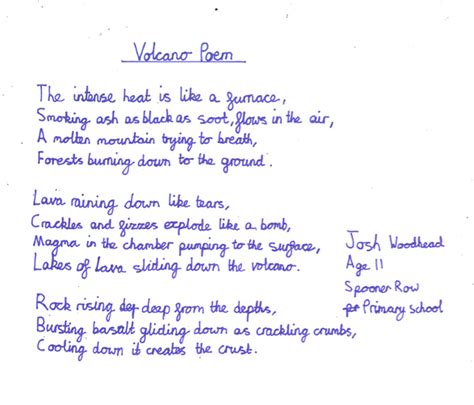 Volcano Poem
The intense heat is like a furnace,
Smoking ash as black as soot, flows in the air,
A molten mountain trying to breath,
Forests burning down to the ground.
Lava raining down like tears,
Crackles and fizzes explode like a bomb,
Magma in the chamber pumping to the surface,
Lakes of lava sliding down the volcano.
Rock rising deep from the depths,
Bursting basalt gliding down as crackling crumbs,
Cooling down it creates the crust.
Josh Woodhead
Age 11
Spooner Row
Primary School